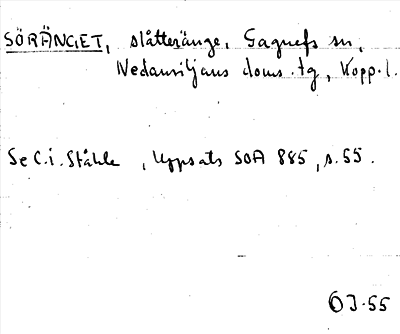 SÖRÄNGET, slåtteränge, Gagnefs sn,
Nedansiljans doms.tg, Kopp.l.
Se C.I. Ståhle, Uppsats SOA 885, s. 55.
ÖJ-55